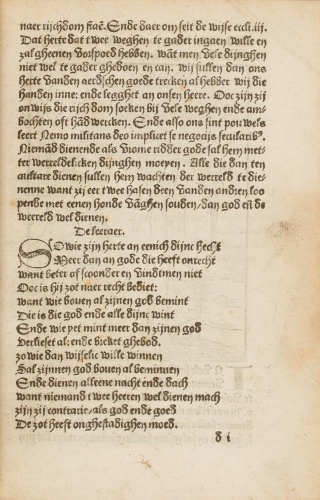 naer rijchdom staē. Ende daer om seit de wijse eccli.iij.
Dat herte dat twee weghen te gader ingaen wille en
zal gheenen voerspoed hebben. wāt men vele dijnghen
niet wel te gader ghedoen en can. wij sullen dan ons
herte vanden aerdschen goede trecken al hebber wij die
handen inne: ende legghet an onsen heere. Ooc zijn zij
onwijs die rijchdom socken bij vele weghen ende am-
bochten oft hādwercken. Ende also ons sint pouwels
leert Nemo militans deo implicet se negocijs secularibꝰ.
Niemād dienende als vrome ridder gode sal hem met-
ter werreldelicken dijnghen moeyen. Alle die dan ten
autare dienen sullen hem wachten der werreld te die-
nenne want zij eer twee hasen deen vanden andren loo
pende met eenen honde vāghen souden/dan god eñ de
werreld wel dienen.
De leeraer.
SOwie zijn herte an eenich dijnc hecht
Meer dan an gode die heeft onrecht
want beter of scoonder en vindtmen niet
Ooc is hij zot naer recht bediet:
want wie bouen al zijnen god bemint
Die is die god ende alle dijnc wint
Ende wie yet mint meer dan zijnen god
Verlieset al: ende bricket ghebod.
zo wie dan wijselic wille winnen
Sal zijnnen god bouen al beminnen
Ende dienen alleene nacht ende dach
want niemand twee heeren wel dienen mach
zijn zij contrarie/als god ende goed
De zot heeft onghestadighen moed.
d i